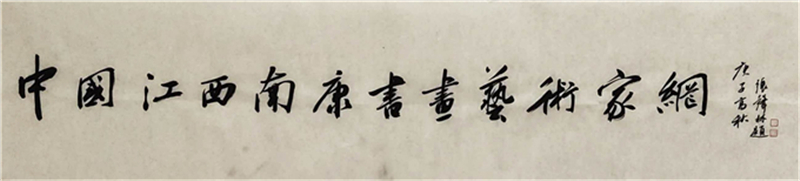 中國江西南康書畫藝術家網
庚子高秋
張鐸林題